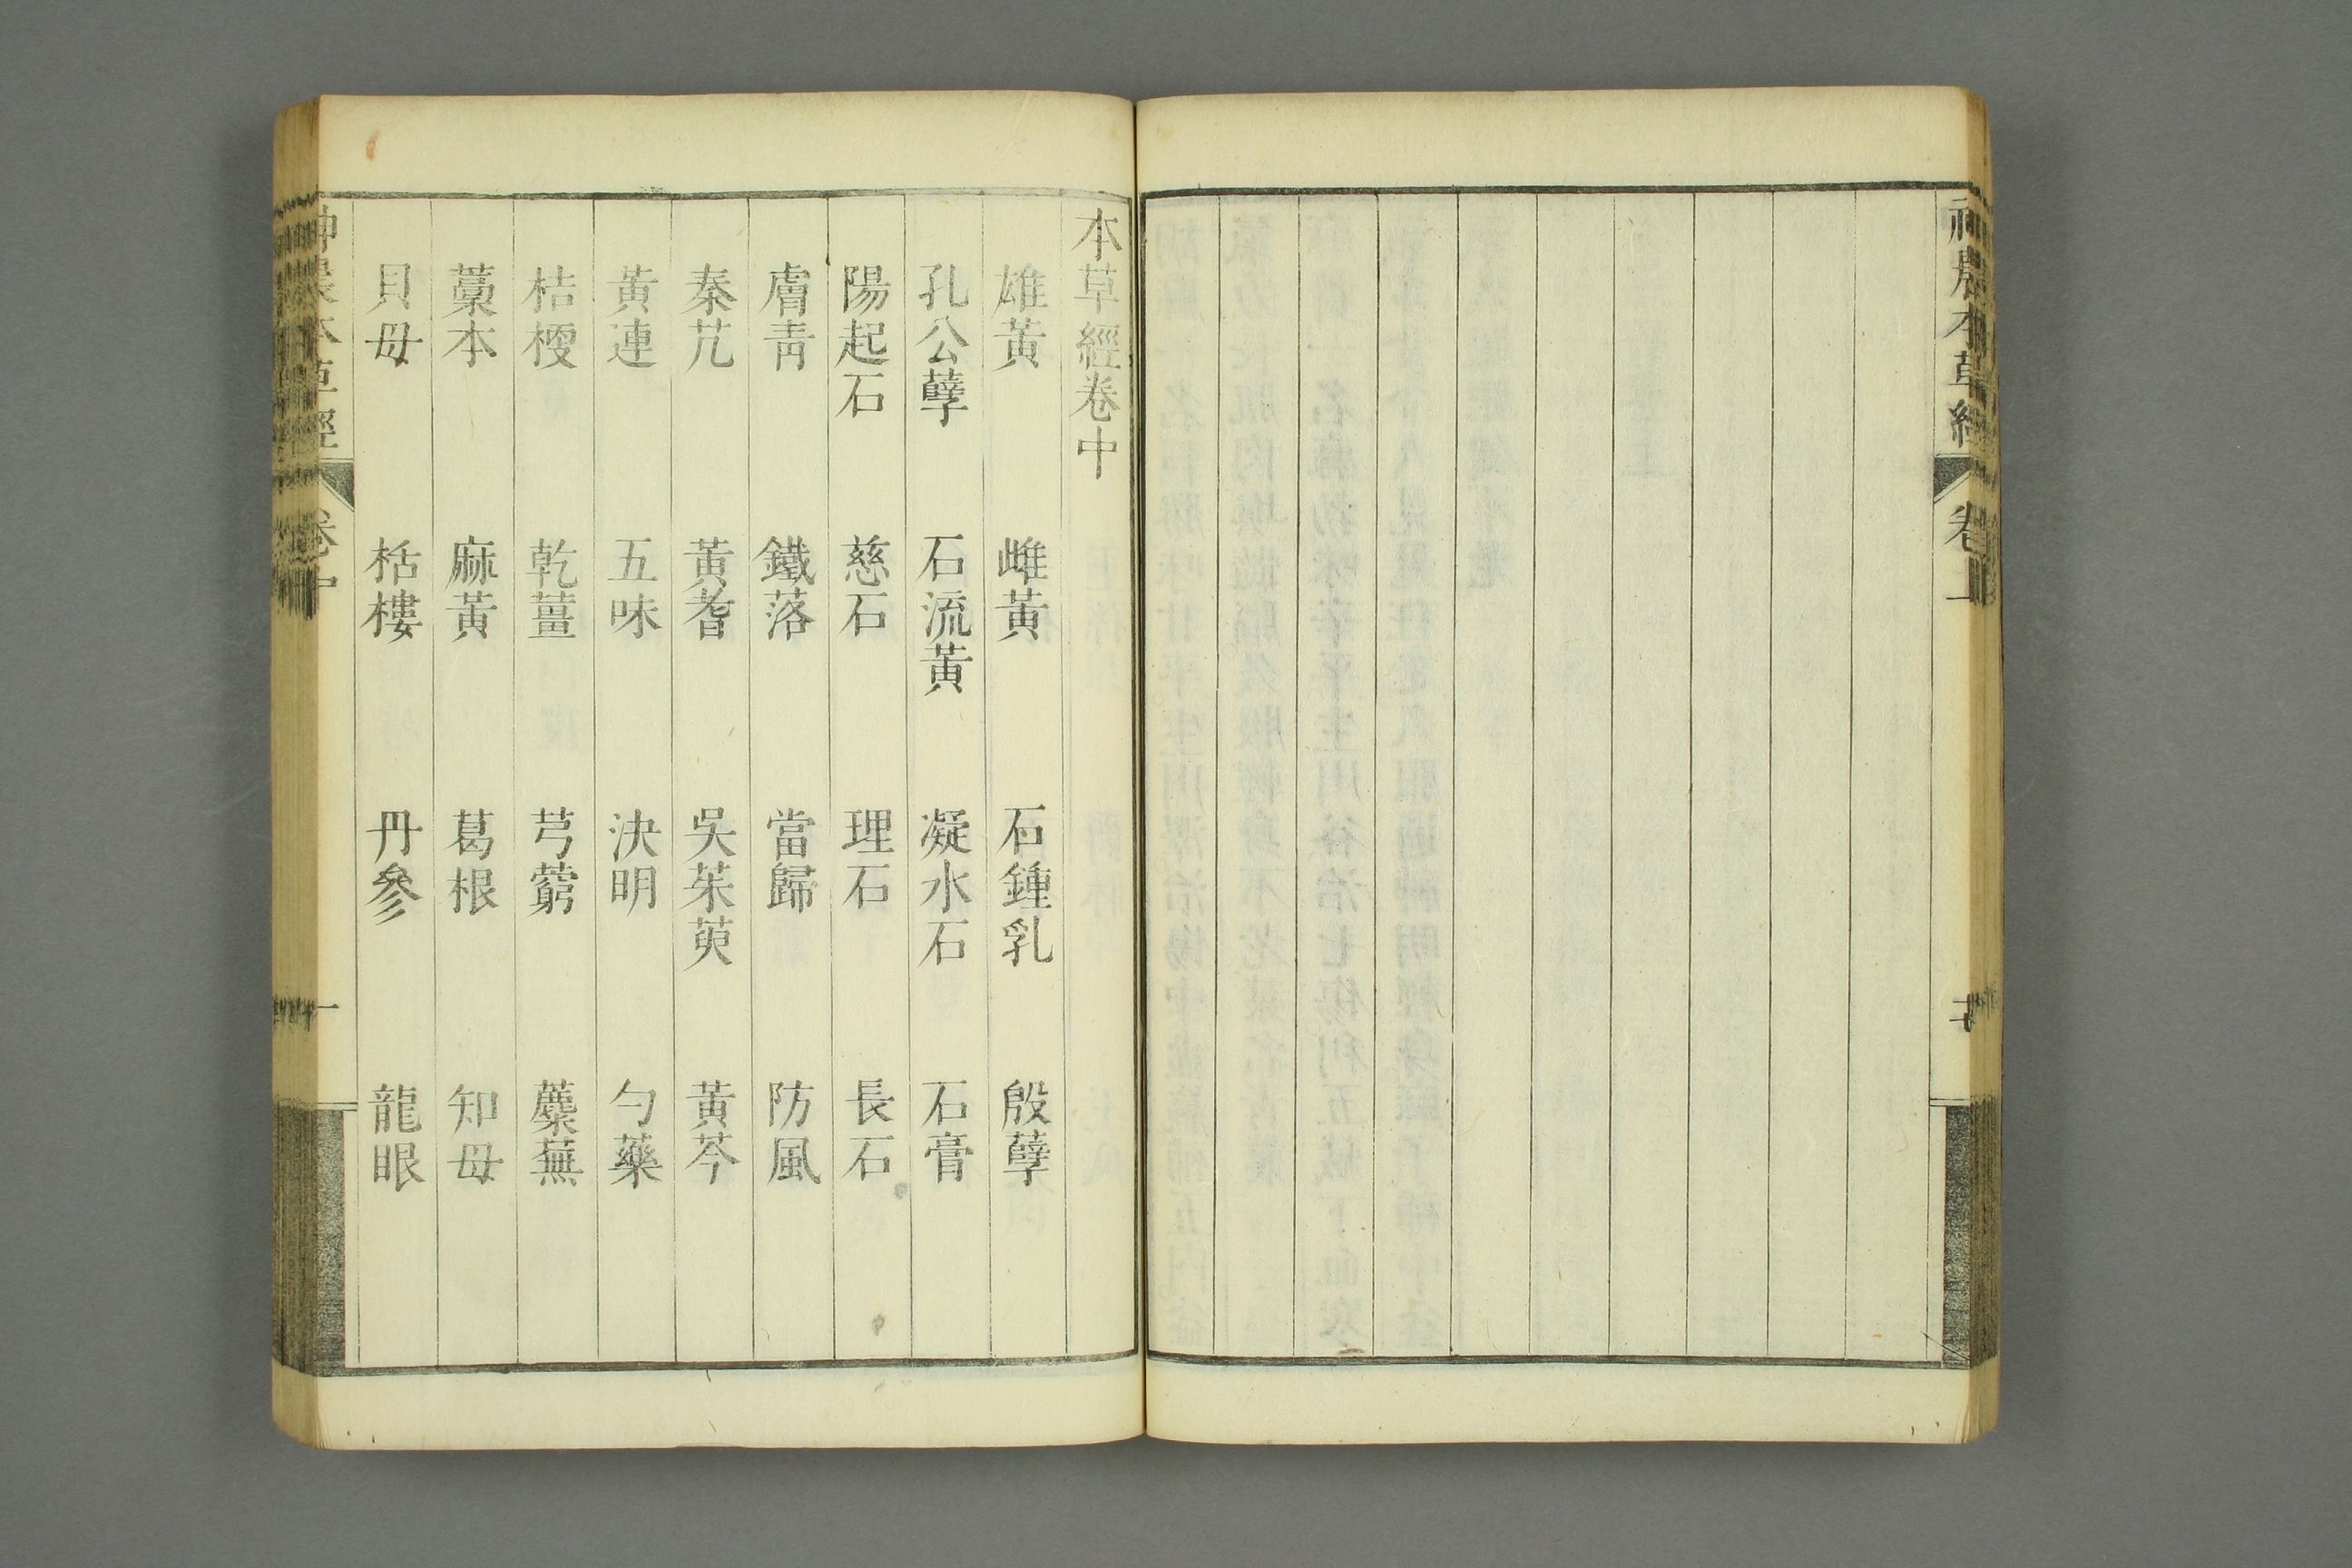 神農本草經 卷上
本草經卷中
雄黃 雌黃 石鍾乳 殷孽
孔公孽 石流黃 凝水石 石膏
陽起石 慈石 理石 長石
膚青 鐵落 當歸 防風
秦艽 黃耆 吳茱萸 黃芩
黃連 五味 決明 勺藥
桔梗 乾薑 芎藭 蘪蕪
藁本 麻黃 葛根 知母
貝母 栝樓 丹參 龍眼
神農本草經 卷中 一